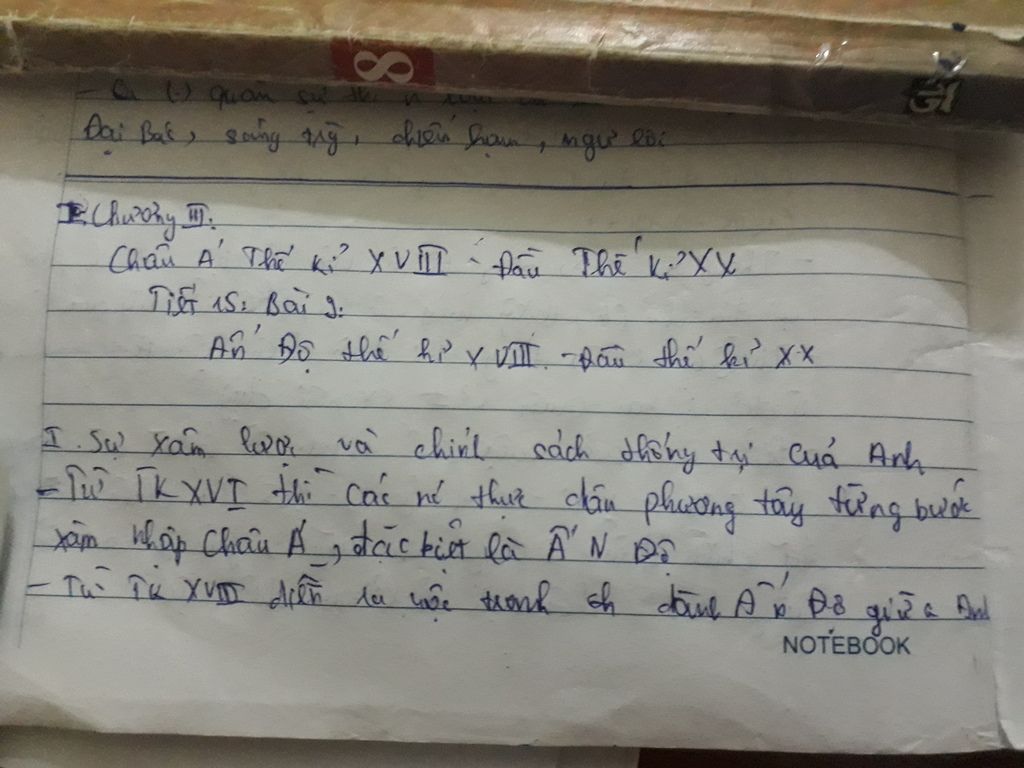 8
quân sự
Đại Bác, súng trg, chiến hạm, ngư lôi
I. Chương III:
Châu Á Thế kỉ XVIII - Đầu Thế kỉ XX
Tiết 15: Bài 9:
Ấn Độ thế kỉ XVIII - Đầu thế kỉ XX
I. Sự xâm lược và chính sách thống trị của Anh
- Từ TK XVI thì các nc thực dân phương tây từng bước
xâm nhập Châu Á, đặc biệt là ẤN Độ
- Từ TK XVIII diễn ra cuộc tranh giành Ấn Độ giữa Anh
NOTEBOOK